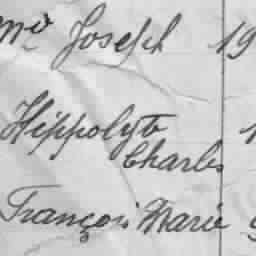 Joseph 19
Hippolyte 1
Charles
François Marie